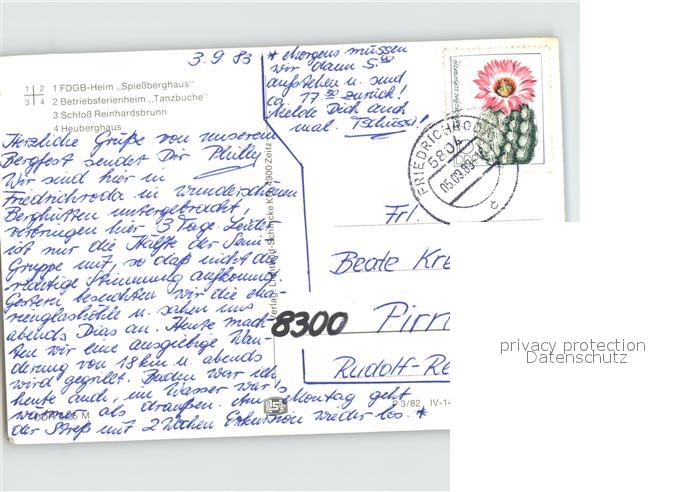 3.9.83
1 2 1 FDGB-Heim „Spießberghaus"
3 4 2 Betriebsferienheim „Tanzbuche"
3 Schloß Reinhardsbrunn
4 Heuberghaus
Herzliche Grüße von unserem
Bergfest sendet Dir Philly
Wir sind hier in
Friedrichroda in wunderschönen
Berghütten untergebracht,
verbringen hier 3 Tage. Leider
ist nur die Hälfte der Semi
Gruppe mit, so daß nicht die
richtige Stimmung aufkommt
Gestern besuchten wir die Ma-
rienglashöhle u. sahen uns
abends Dias an. Heute mach-
ten wir eine ausgiebige Wan-
derung von 18 km u. abends
wird gegrillt. Baden war ich
heute auch, im Wasser war's
wärmer als draußen. Am Montag geht
der Streß mit 2 Wochen Exkursion wieder los. *
* Morgens müssen
wir dann 5.00
aufstehen u. sind
ca. 17.30 zurück!
Melde Dich auch
mal. Tschüssi!
FRIEDRICHRODA
5804
05.09.83
Frl.
Beate Kre
8300 Pirn
Rudolf-Re
Verlag
Zeitz
M
P 3/82 IV-14
privacy protection
Datenschutz